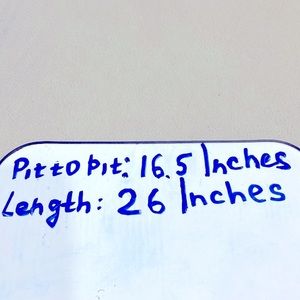 Pit to pit: 16.5 Inches
Length: 26 Inches